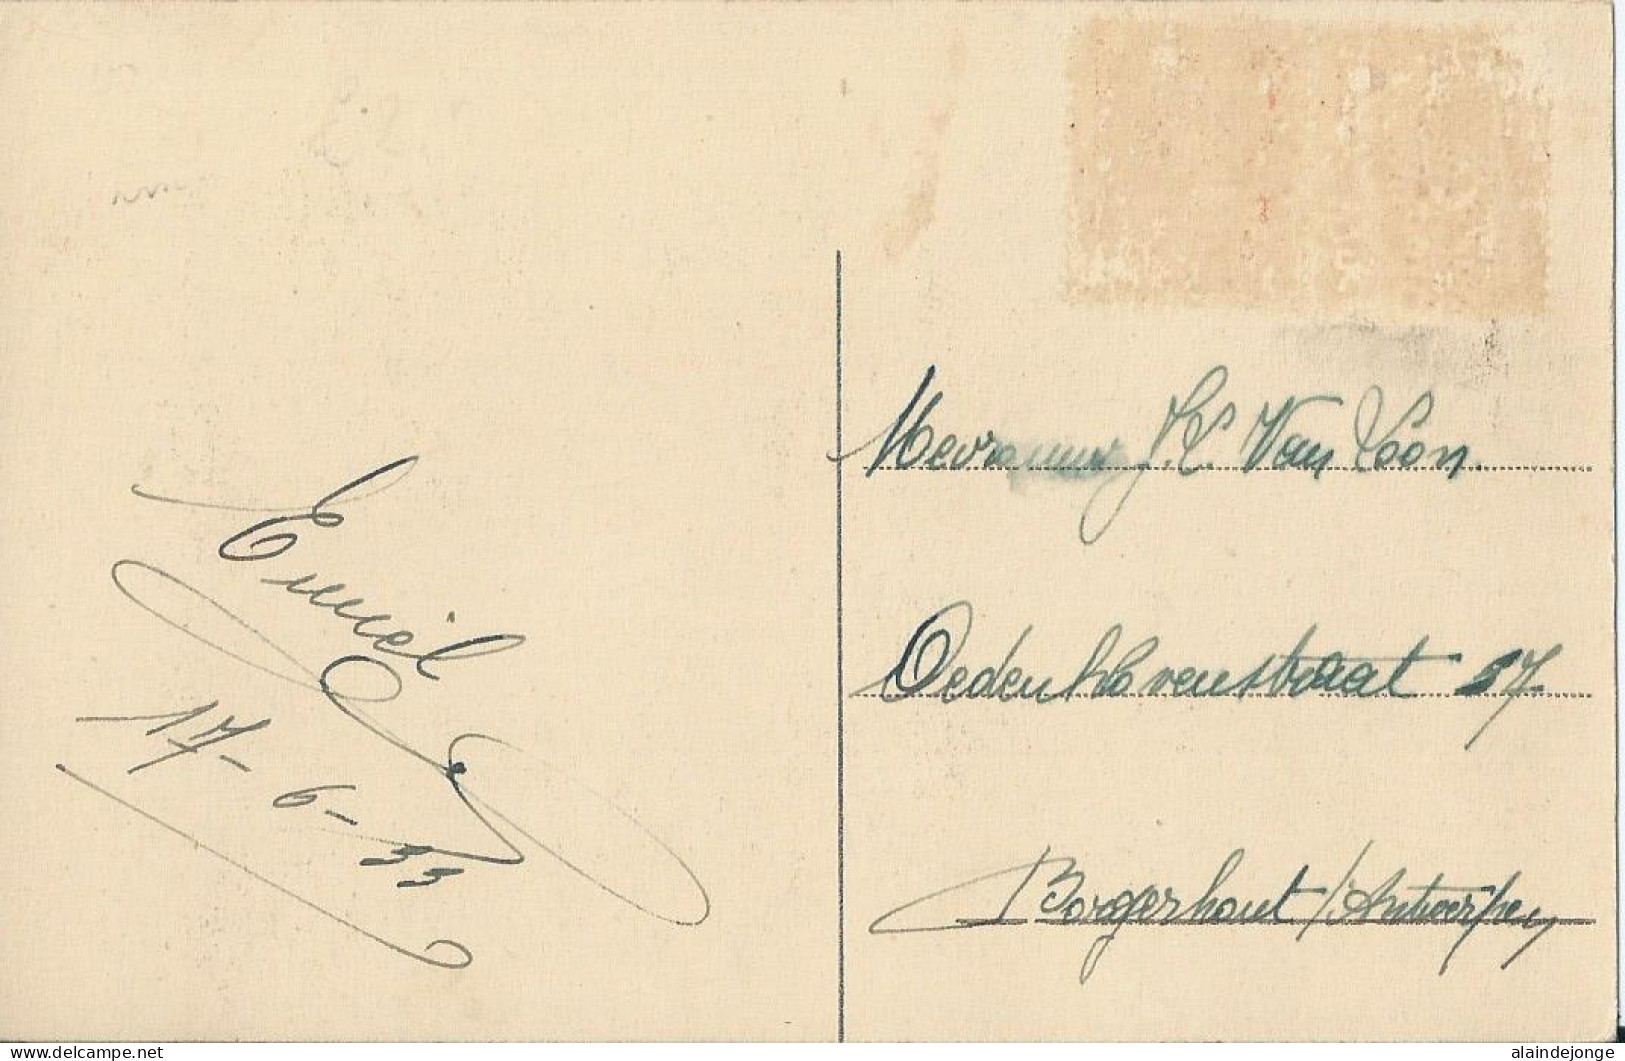 Emiël
17-6-33
Mevrouw J. C. Van Loon.
Oedenkovenstraat 57
Borgerhout / Antwerpen
delcampe.net
alaindejonge